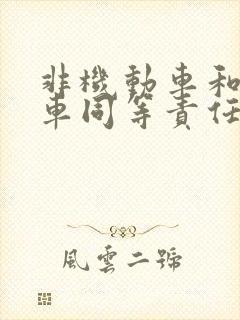 非機動車和
車同等責任
風雲二號